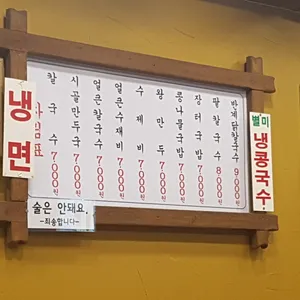 냉면
칼국수 7000원
시골만두국 7000원
얼큰칼국수 7000원
얼큰수제비 7000원
수제비 7000원
왕만두 7000원
콩나물국밥 7000원
장터국밥 7000원
팥칼국수 8000원
반계닭칼국수 9000원
별미 냉콩국수
술은 안돼요.
-죄송합니다-